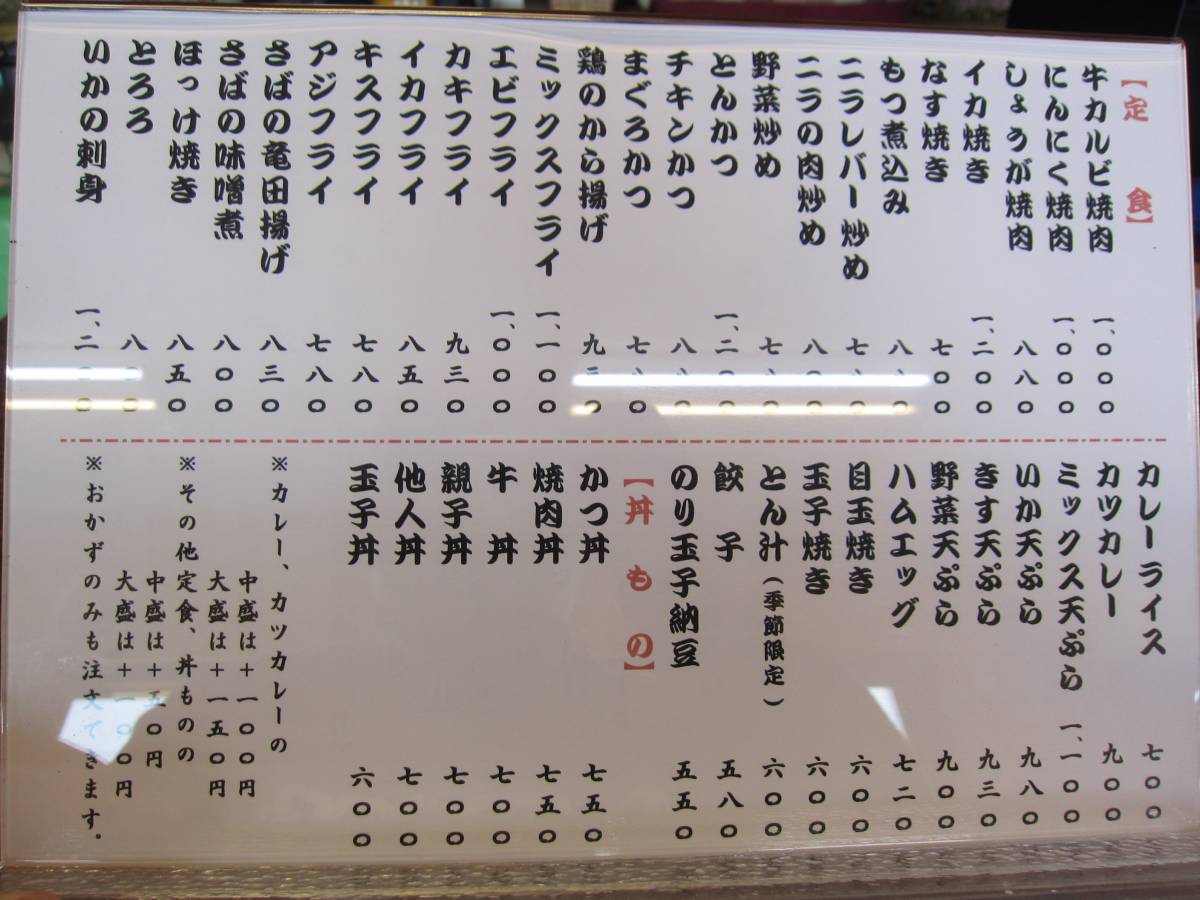 【定食】
牛カルビ焼肉 一、〇〇〇
にんにく焼肉 一、〇〇〇
しょうが焼肉 八八〇
イカ焼き 一、二〇〇
なす焼き 七〇〇
もつ煮込み
ニラレバー炒め
ニラの肉炒め 八〇〇
野菜炒め
とんかつ 一、二〇〇
チキンかつ
まぐろかつ 七八〇
鶏のから揚げ 九三〇
ミックスフライ 一、一〇〇
エビフライ 一、〇〇〇
カキフライ 九三〇
イカフライ 八五〇
キスフライ 七八〇
アジフライ 七八〇
さばの竜田揚げ 八三〇
さばの味噌煮 八〇〇
ほっけ焼き 八五〇
とろろ 八〇〇
いかの刺身 一、二〇〇
カレーライス 七〇〇
カツカレー 九〇〇
ミックス天ぷら 一、一〇〇
いか天ぷら 九八〇
きす天ぷら 九三〇
野菜天ぷら 九〇〇
ハムエッグ 七二〇
目玉焼き 六〇〇
玉子焼き 六〇〇
とん汁(季節限定) 六〇〇
餃子 五八〇
のり玉子納豆 五五〇
【丼もの】
かつ丼 七五〇
焼肉丼 七五〇
牛丼 七〇〇
親子丼 七〇〇
他人丼 七〇〇
玉子丼 六〇〇
※カレー、カツカレーの
中盛は+一〇〇円
大盛は+一五〇円
※その他定食、丼ものの
中盛は+五〇円
大盛は+一〇〇円
※おかずのみも注文できます。